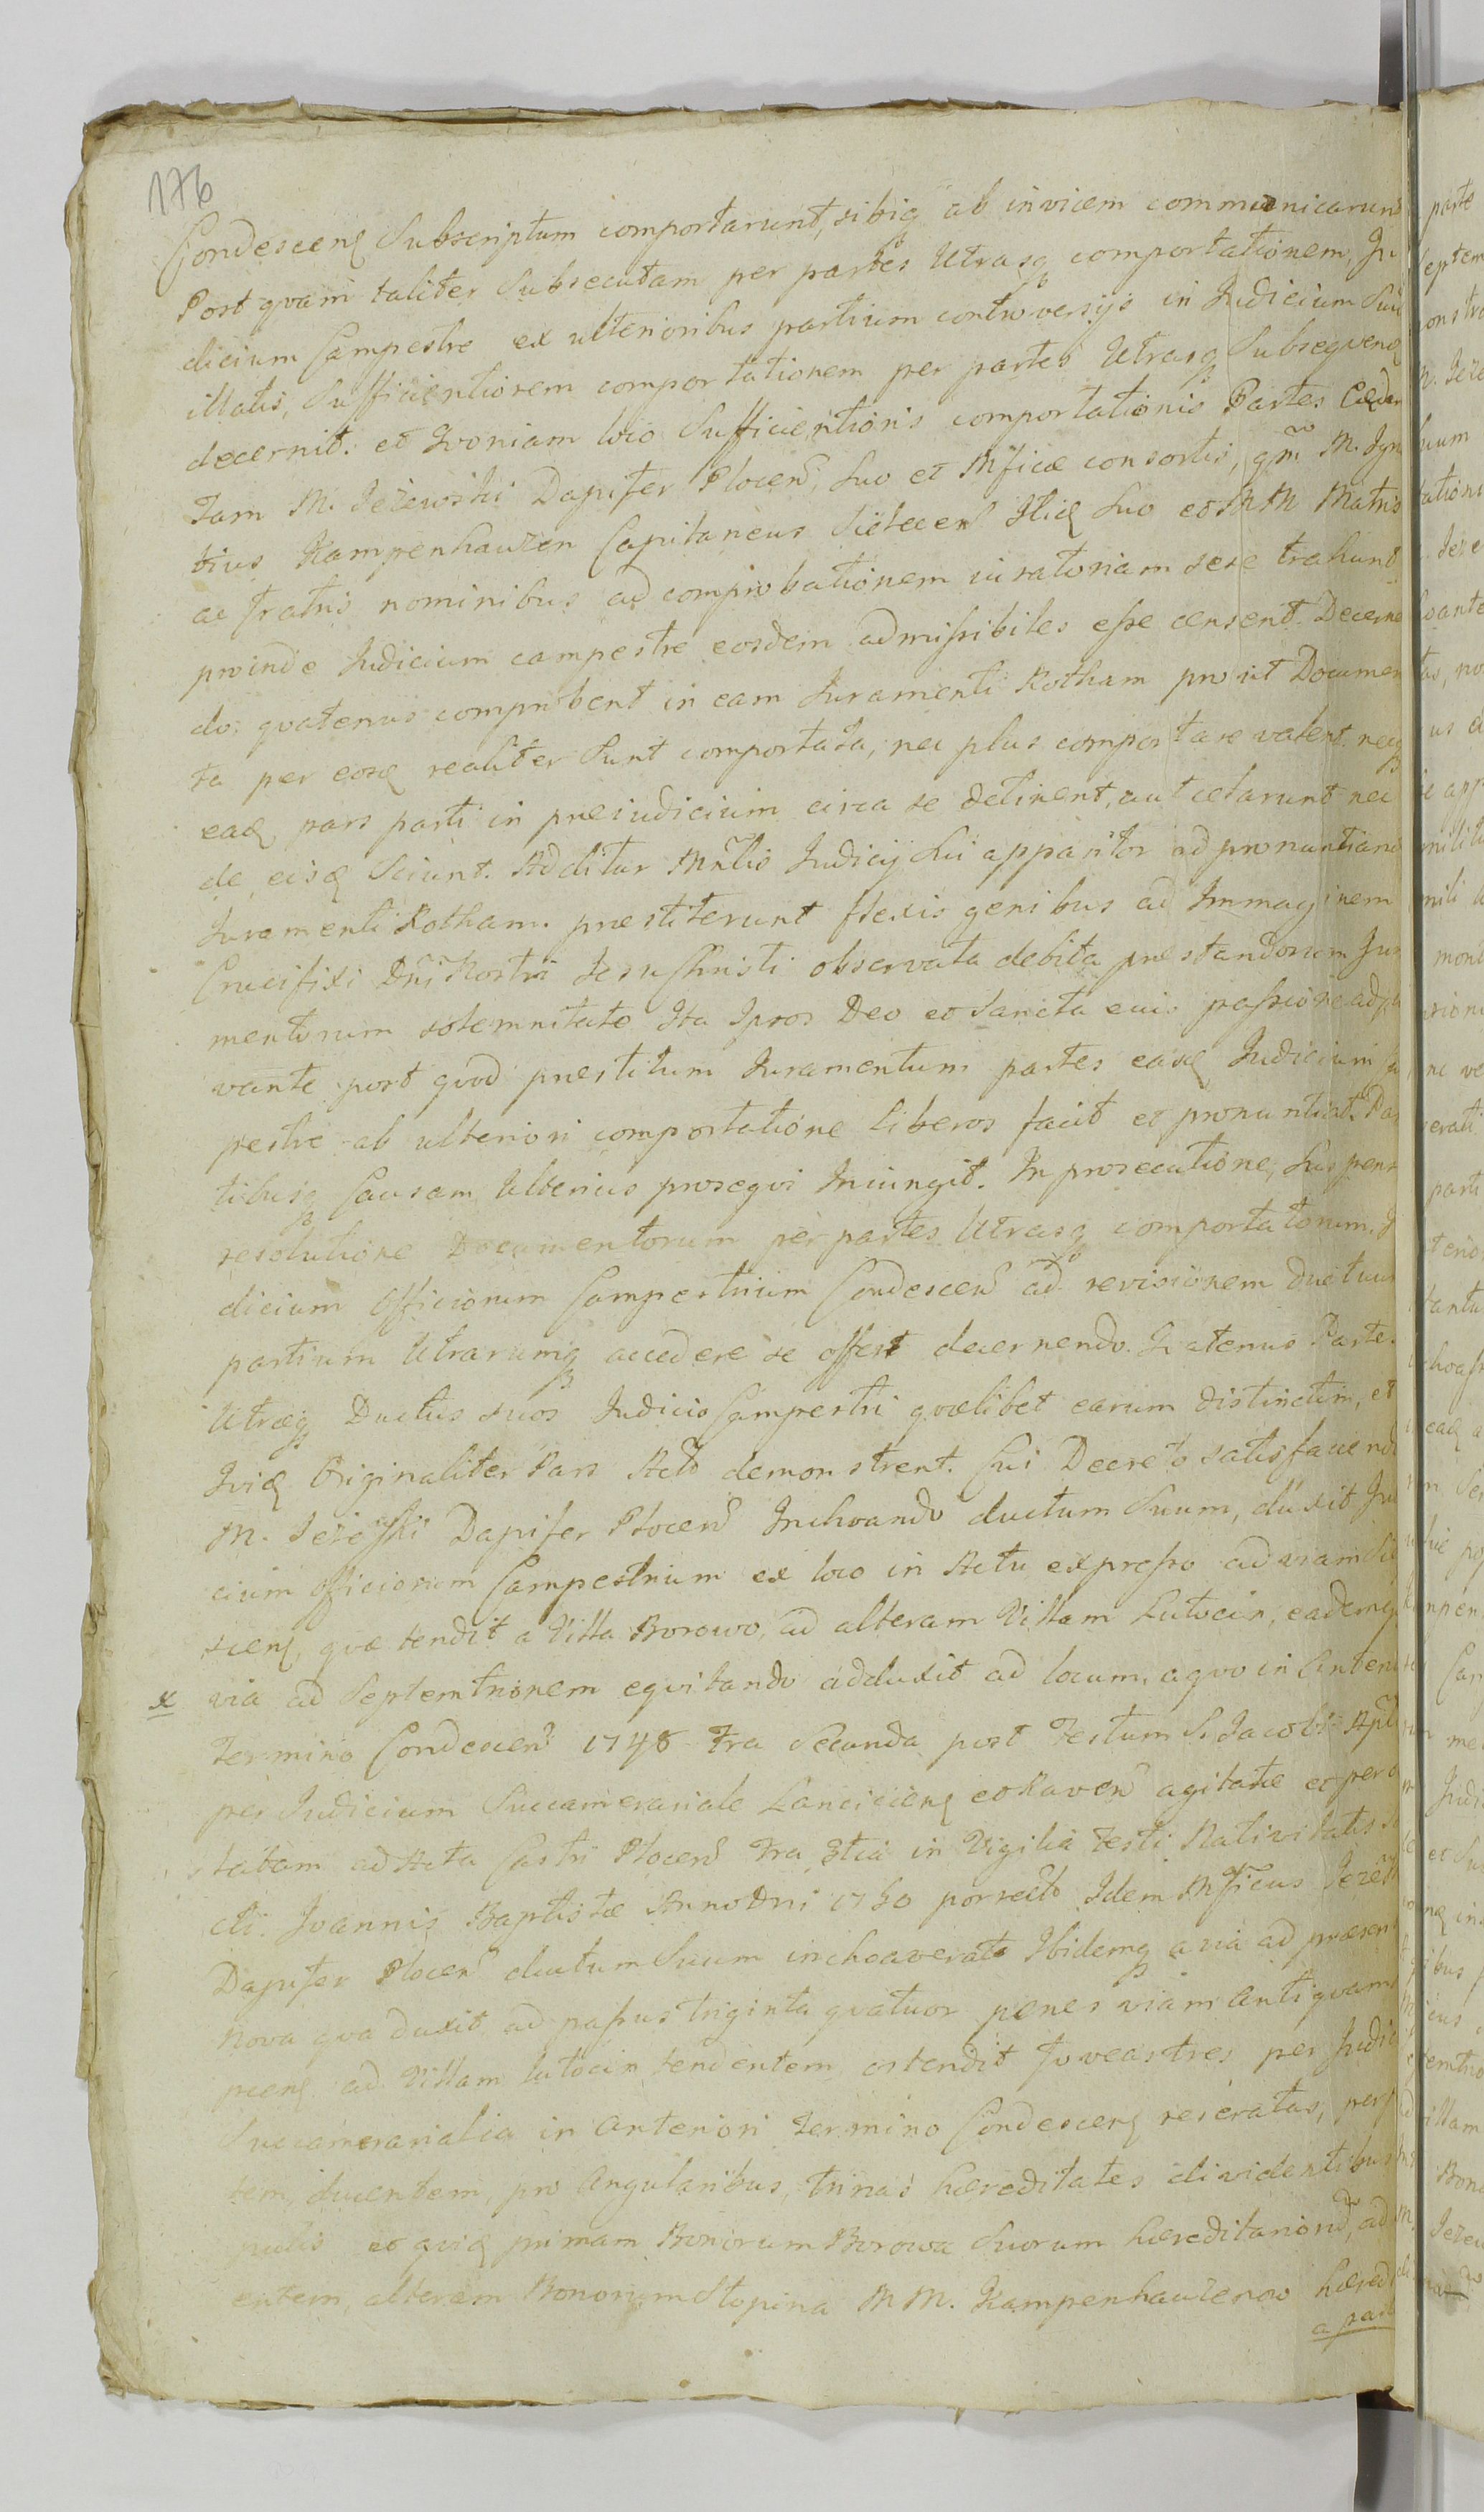 176
Condescenς Subscriptum comportarunt, sibiq ab invicem communicarunt
Postqvam taliter Subsecutam per partes Utrasq comportationem, Ju
dicium Campestre ex ulterioribus partium controversijs in Judicium Suū
illatis, Sufficientiorem comportationem per partes Utrasq Subseqvenς
decernit. et Qvoniam loco Sufficientioris comportationis Partes Eaedem
Tam M. Jeżewski Dapifer Plocenς, Suo et Mficae consortis, qm M. Igna
tius Kampenhauzen Capitaneus Sieteceń Itiς Suo et MM Matris
ac fratris nominibus ad comprobationem iuratoriam sese trahunt
proinde Judicium campestre eosdem admissibiles esse censent. Decernen
do: qvatenus comprobent in eam Juramenti Rotham pro ut Documen
ta per eosς realiter Sunt comportata, nec plus comportare valent. neq
eaς pars parti in preiudicium circa se detinent, aut celarunt nec
de eisς Sciunt. Additur Mńlis Judicij Sui apparitor ad pronuntiand
Juramenti Rotham. praestiterunt flexis genibus ad Immaginem
Crucifixi Dńi Nostri Jesu Christi observata debita praestandorum Jura
mentorum solemnitate Ita Ipsos Deo et Sancta euis passione adju
vante. post qvod praestitum Juramentum partes easς Judicium
pestre ab ulteriori comportatione liberos facit et pronuntiat. Par
tibusq Causam Ulterius proseqvi Iniungit. In prosecutione, Suspensa
resolutione Documentorum per partes Utrasq comportatorum. Ju
dicium Officiorum Campestrium Condesceń ad revisionem Ductuum
partium Utrarumq accedere se offert decernendo. Qvatenus Partes
Utraeq Ductus suos Judicio Campestri qvaelibet earum distinctim, et
Qviς Originaliter Pars Actō demonstrent. Cui Decreto satisfaciendo
M. Jeżeski Dapifer Ploceń Inchoando ductum Suum, duxit Judi
cium officiorum Campestrium ex loco in Actu expresso ad viam
scenς, qvae tendit a Villa Borowo, ad alteram Villam Lutocin, eademq
x via ad Septemtrionem eqvitando adduxit ad locum, a qvo in Anteri
Termino Condesceń 1748 Fra Secunda post Festum S. Jacobi Apli
per Judicium Succamerariale Lancicienς et Raveń agitatae et
statam ad Acta Castri Ploceń Fra 3tia in Vigilia Festi Nativitatis S
cti. Joannis Baptistae Anno Dni 1750 porrectō Idem Mficus Jeżewski
Dapifer Ploceń ductum Suum inchoaverat. Ibidemq a via ad praesens
nova qva duxit ad passus triginta qvatuor penes viam Antiqvam
ad Villam Lutocin tendentem ostendit foveas tres per Judic
Succamerarialia in Anteriori Termino Condescenς reseratas,
tem, ducentem, pro Angularibus, trinas haereditates dividentibus
et qviς primam Bonorum Borowa Suorum haereditariorū, ad
entem, alteram Bonorum Stopina MM. Kampenhauzenow haered
a par